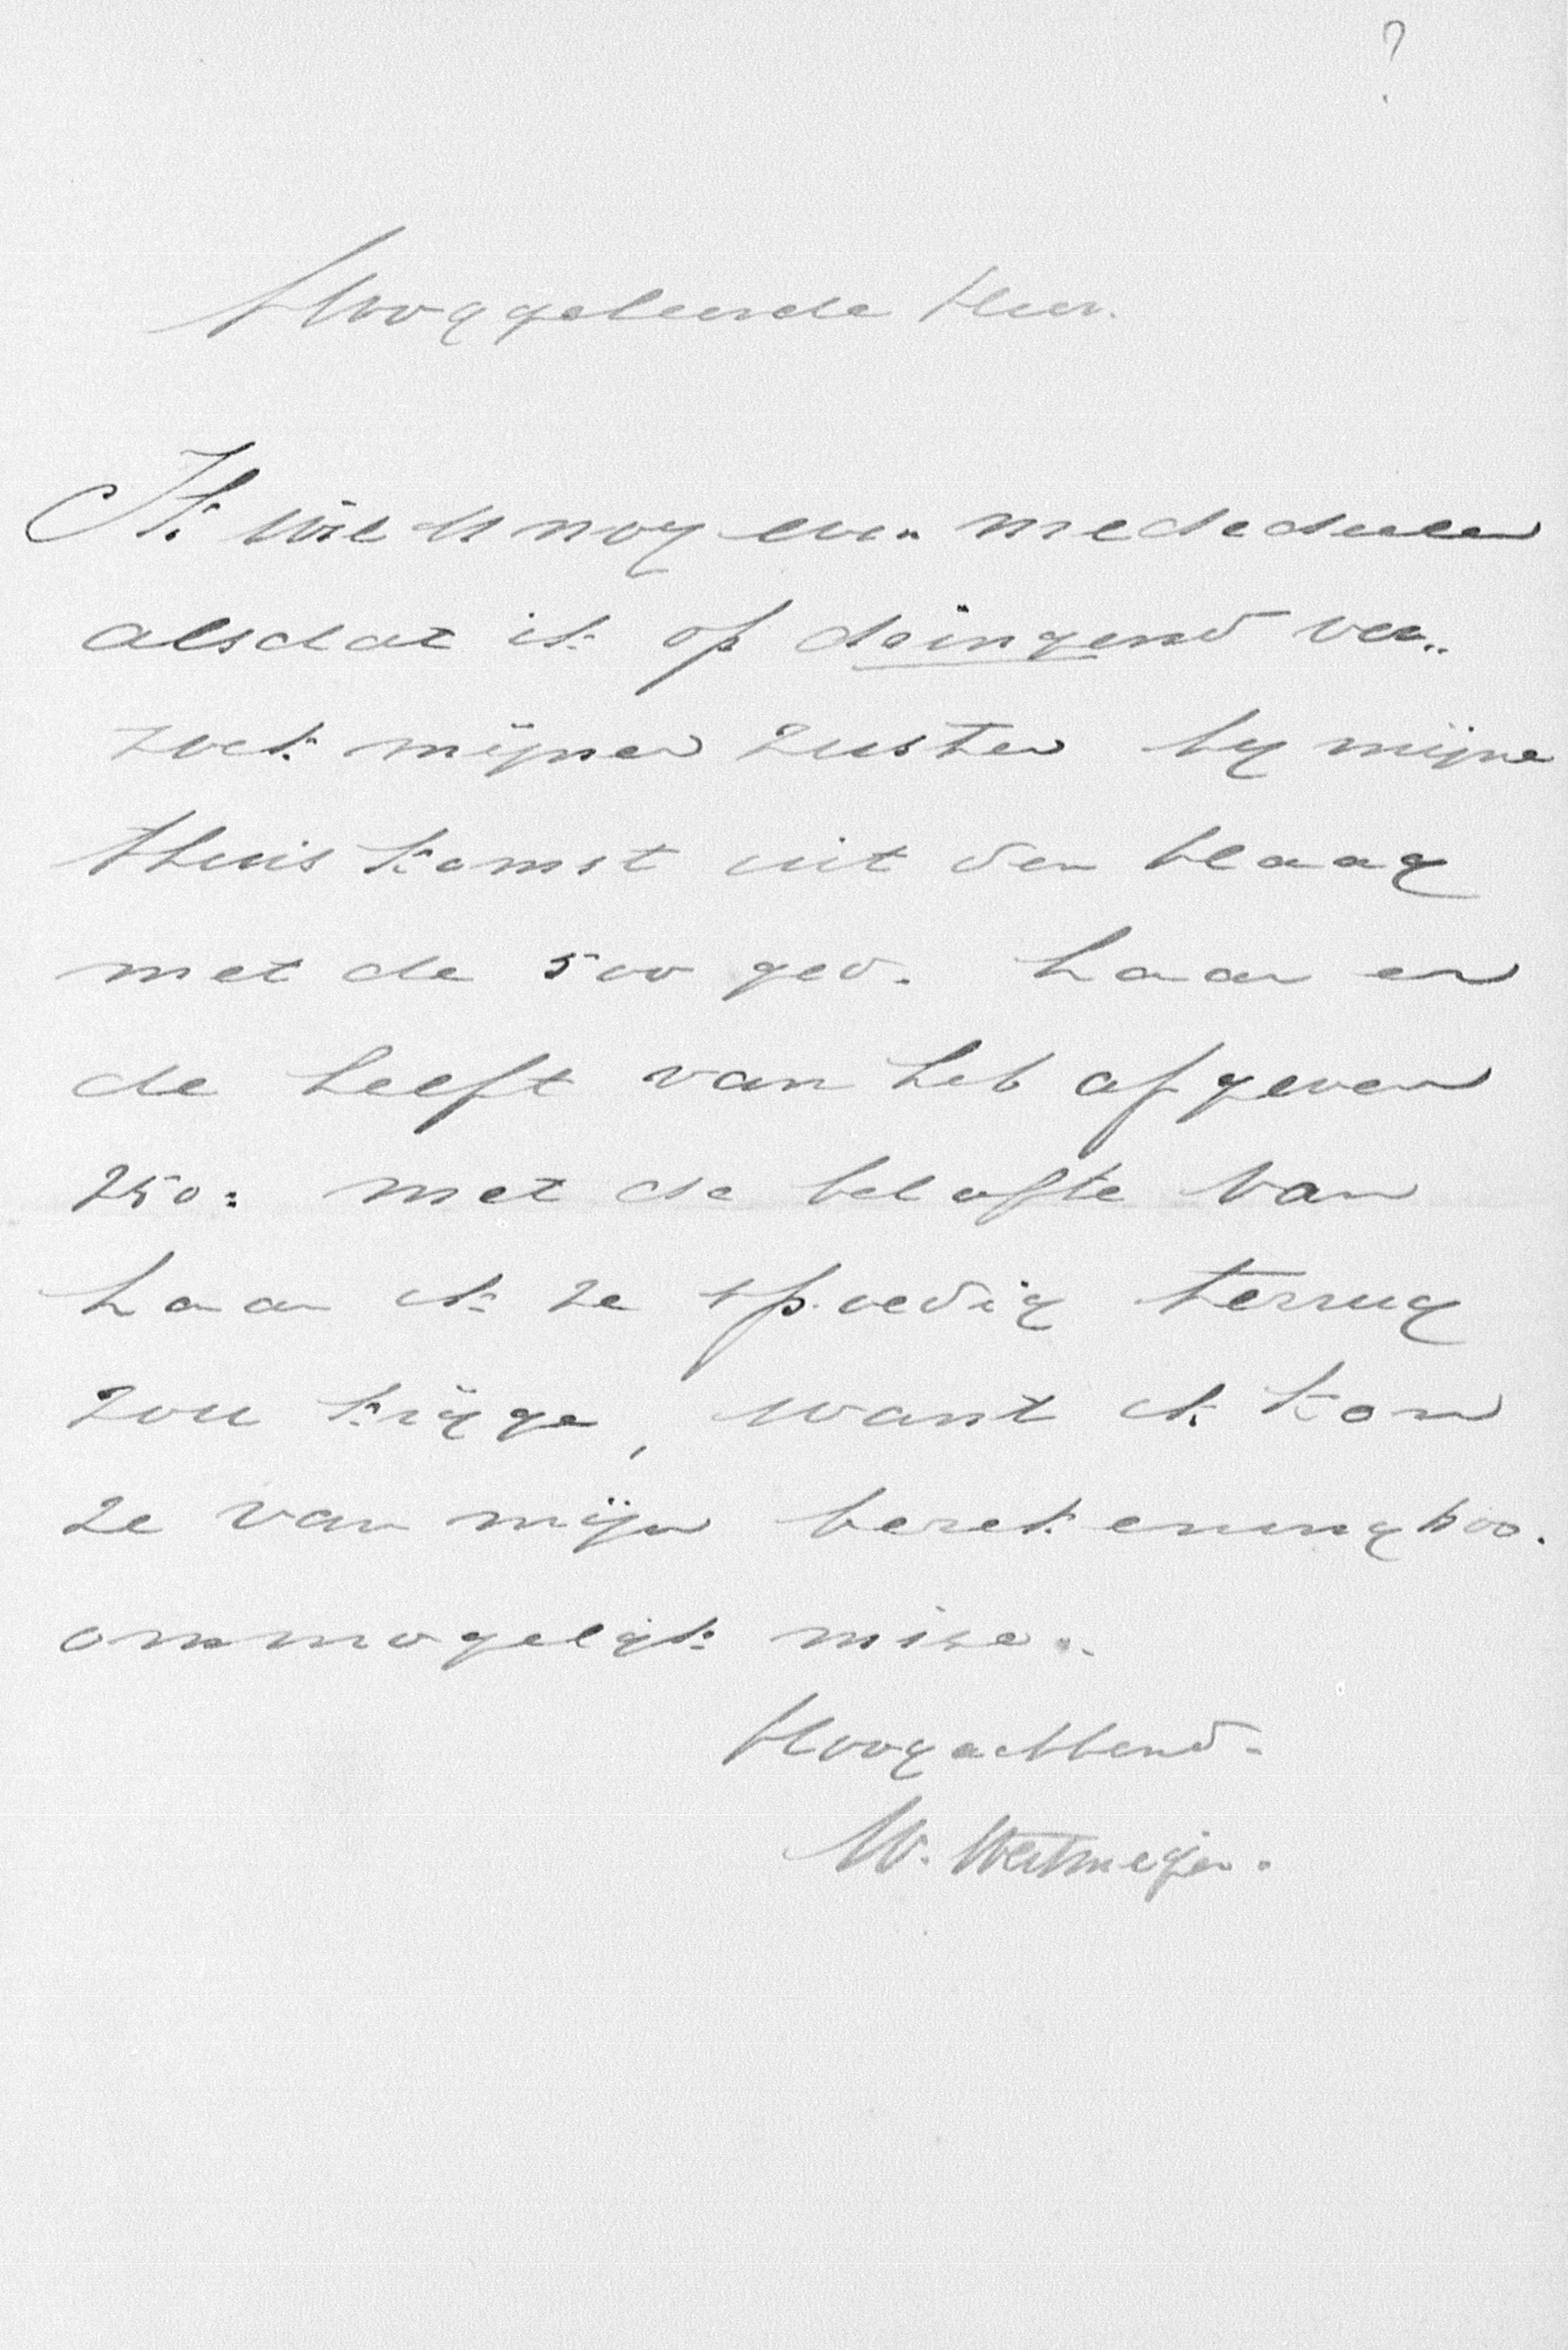 ?
Hooggeleerde Heer.
Ik wil U nog even mededeelen
alsdat ik op dringend ver..
zoek mijner zuster by mijne
thuis komst uit den Haag
met de 500 geo. haar er
de helft van heb afgeven
250: met de belofte van
haar ik ze spoedig terrug
zou krijge, want ik kon
ze van mijn berekening hoo.
onmogelijk misse..
Hoogachtend.
W. Westmeijer.